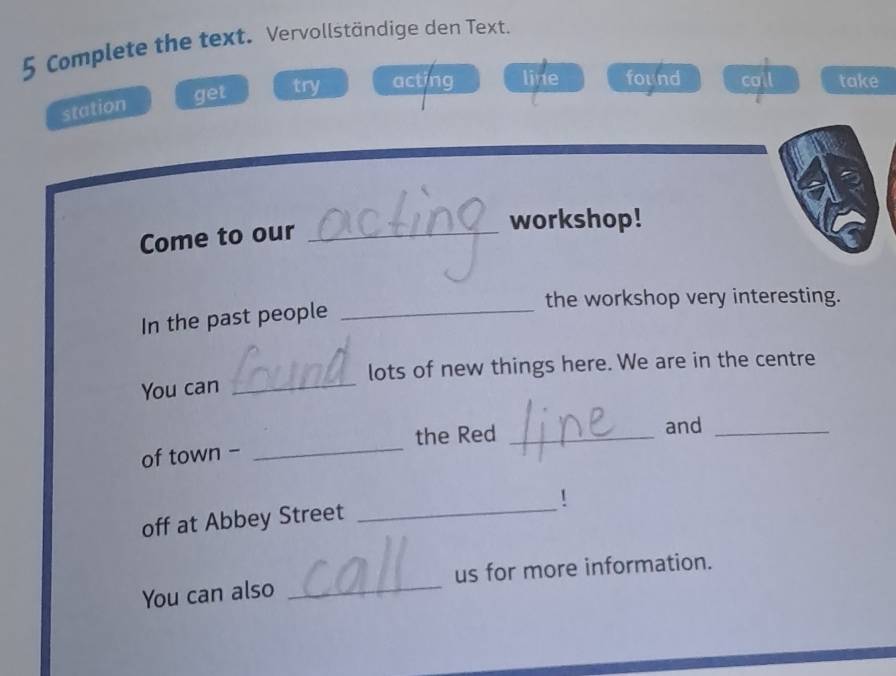 5 Complete the text. Vervollständige den Text.
station get try acting line found call take
Come to our acting workshop!
In the past people ____ the workshop very interesting.
You can found lots of new things here. We are in the centre
of town – ____ the Red line and ____
off at Abbey Street ____!
You can also call us for more information.